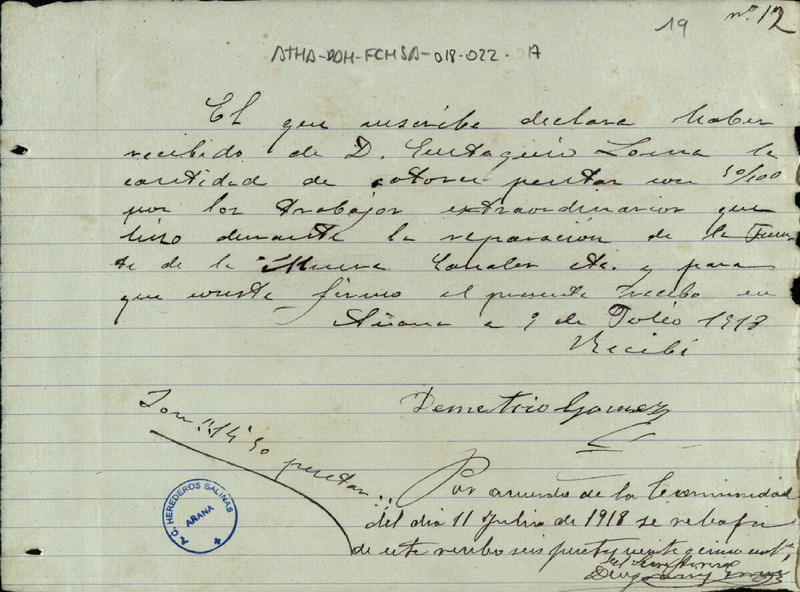 nº 12
19
ATHA-DOH-FCHSA-018-022-017
El que suscribe declara haber
recibido de D. Eustaquio Loma la
cantidad de catorce pesetas con 50/100
por los trabajos extraordinarios que
hizo durante la reparación de la Fuen
te de la Muera Canales etc. y para
que conste firmo el presente recibo en
Añana a 9 de Julio 1918
Recibí
Demetrio Gomez
Son: 14'50 pesetas
Por acuerdo de la Comunidad
del dia 11 Julio de 1918 se rebaja
de este recibo seis pesetas veinte cinco
A.C. HEREDEROS SALINAS
AÑANA